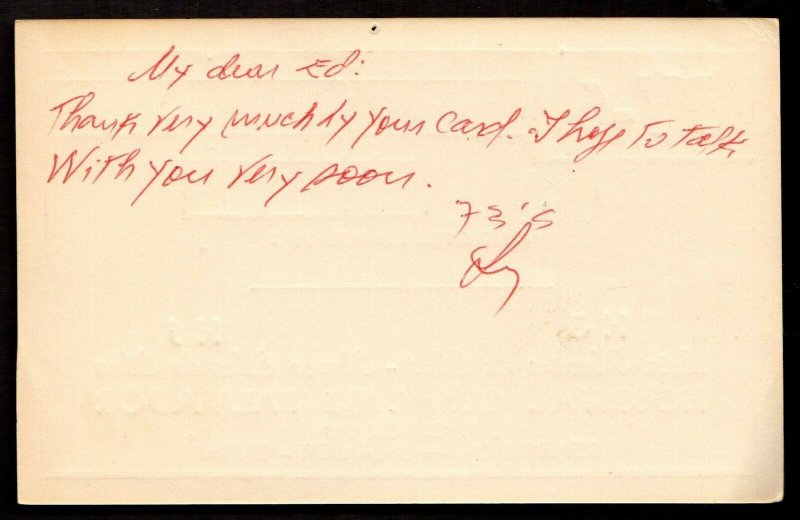 My dear Ed:
Thank very much by your card. I hope to talk
With you very soon.
73's